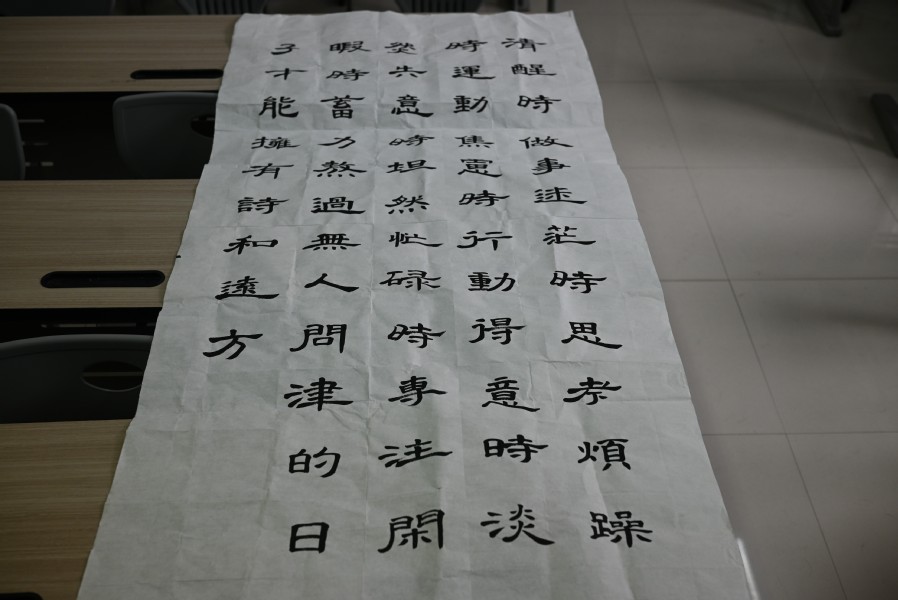 清醒時做事迷茫時思考煩躁
時運動焦慮時行動得意時淡
然失意時坦然忙碌時專注閑
暇時蓄力熬過無人問津的日
子才能擁有詩和遠方